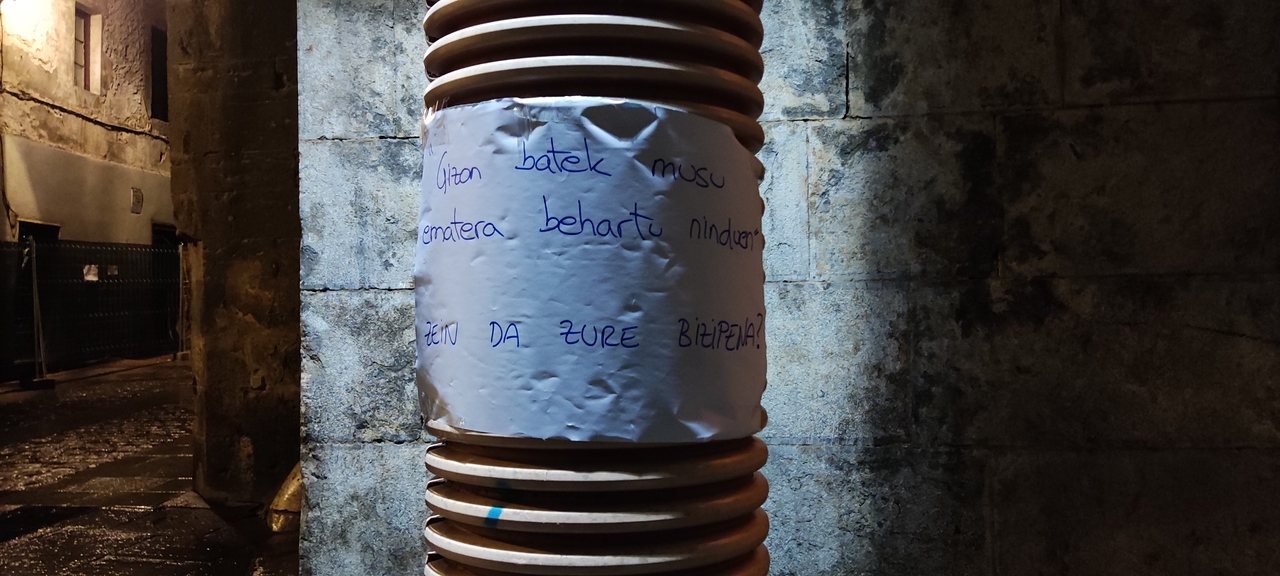 "Gizon batek musu
ematera behartu ninduen"
ZEIN DA ZURE BIZIPENA?